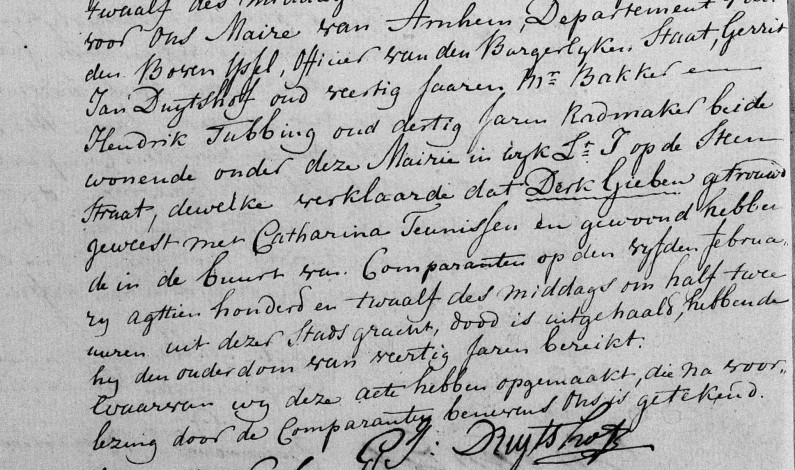 twaalf des middag
voor Ons Maire van Arnhem, Departement van
den Boven Yssel, Officier van den Burgerlyken Staat, Gerrit
Jan Duytshof oud veertig Jaaren Mr. Bakker en
Hendrik Tubbing oud dertig Jaren Radmaker beide
wonende onder deze Mairie in wyk Lr. J op de Steen
Straat, dewelke verklaarde dat Derk Gieben getrouwd
geweest met Catharina Teunissen en gewoond hebben
de in de buurt van Comparanten op den vyfden Februa
ry agttien honderd en twaalf des middags om half twee
uuren uit dezer Stads gracht, dood is uitgehaald, hebbende
hy den ouderdom van veertig Jaren bereikt.
Waarvan wy deze acte hebben opgemaakt, die na voor-
lezing door de Comparanten benevens Ons is getekend.
G J: Duytshof